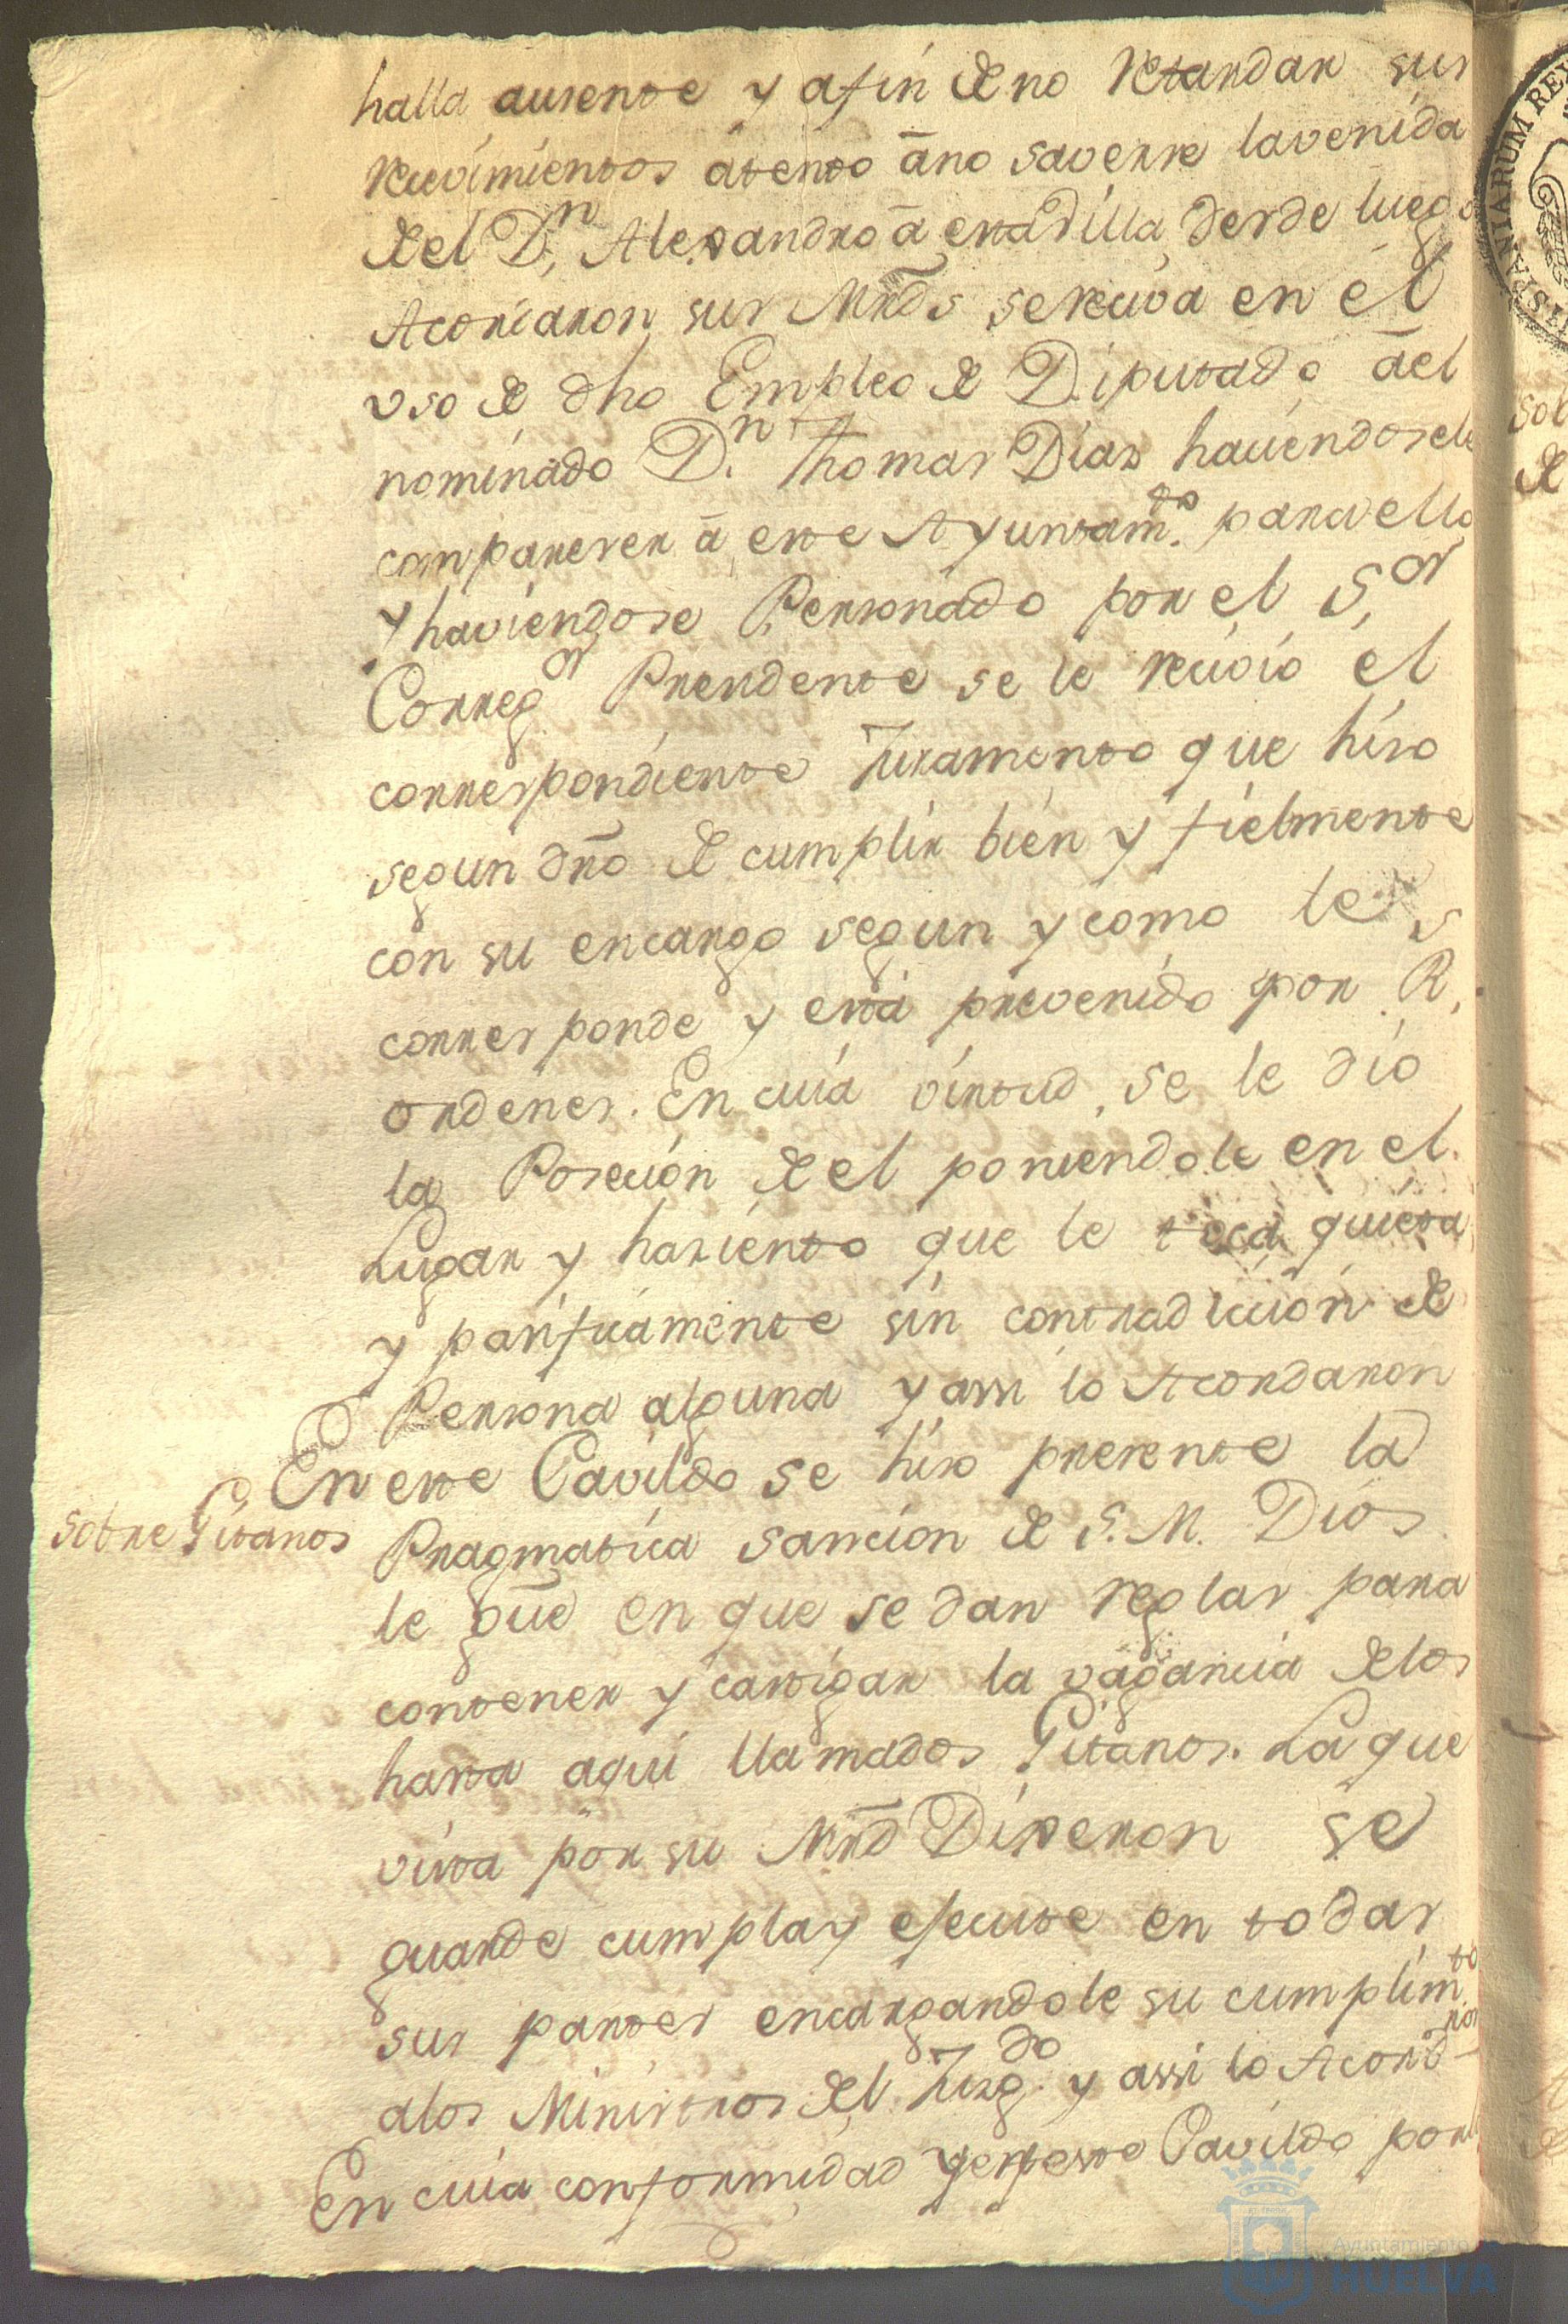 halla ausente y afin de no retardar sus
recivimientos atento âno saverse lavenida
de el Dn. Alexandro â esta Villa, desde luego
Acordaron sus Mrds se reciva en el
uso de dho Empleo de Diputado âel
nominado Dn. Thomas Dias haciendosele
comparecer â este Ayuntamto. para ello
y haviendose Personado por el Sor
Corregor Presidente se le recivio el
correspondiente Juramento que hiso
segun dro de cumplir bien y fielmente
con su encargo segun y como le
corresponde y está prevenido por R.s
ordenes. En cuia virtud, se le dio
la Posecion de el poniendole en el
Lugar y haciento que le toca quieta
y pasificamente sin contradiccion de
Persona alguna y assi lo Acordaron
En este Cavildo se hiso presente la
sobre Gitanos
Pragmatica Sancion de S. M. Dios
le gûe en que se dan reglas para
contener y castigar la vagancia delos
hasta aqui llamados Gitanos. La que
vista por su Mrd Dixeron se
guarde cumpla y execute en todas
sus partes encargandole su cumplimto
alos Ministros del Jusgdo. y assi lo Acordron
En cuia conformidad y en este Cavildo por
SPANIARUM RE
Sob
de
Ayuntamiento
HUELVA